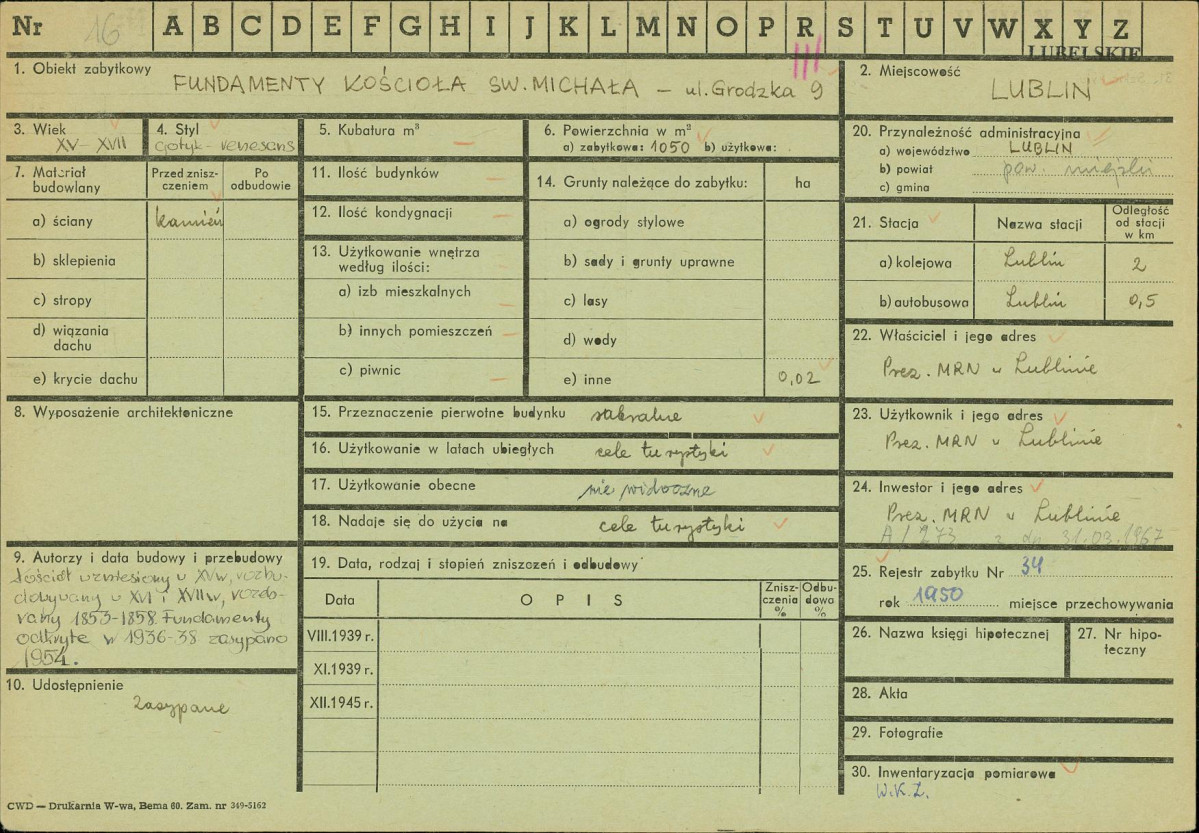 Nr 16 A B C D E F G H I J K L M N O P R S T U V W X Y Z
LUBELSKIE
1. Obiekt zabytkowy
FUNDAMENTY KOŚCIOŁA ŚW. MICHAŁA – ul. Grodzka 9
2. Miejscowość
LUBLIN
3. Wiek
XV – XVII
4. Styl
gotyk – renesans
5. Kubatura m³
—
6. Powierzchnia w m²
a) zabytkowa: 1050 b) użytkowa:
7. Materiał budowlany
Przed znisz-
czeniem
Po
odbudowie
a) ściany kamień
b) sklepienia
c) stropy
d) wiązania
dachu
e) krycie dachu
8. Wyposażenie architektoniczne
9. Autorzy i data budowy i przebudowy
Kościół wzniesiony w XVw, rozbu-
dowywany w XVI i XVIIw, rozeb-
rany 1853-1858. Fundamenty
odkryte w 1936-38 zasypano
1954.
10. Udostępnienie
zasypane
11. Ilość budynków —
12. Ilość kondygnacji —
13. Użytkowanie wnętrza
według ilości: —
a) izb mieszkalnych —
b) innych pomieszczeń —
c) piwnic —
14. Grunty należące do zabytku: ha
a) ogrody stylowe
b) sady i grunty uprawne
c) lasy
d) wody
e) inne 0,02
15. Przeznaczenie pierwotne budynku sakralne
16. Użytkowanie w latach ubiegłych cele turystyki
17. Użytkowanie obecne nie widoczne
18. Nadaje się do użycia na cele turystyki
19. Data, rodzaj i stopień zniszczeń i odbudowy
Data
OPIS
Znisz-
czenia
%
Odbu-
dowa
%
VIII.1939 r.
XI.1939 r.
XII.1945 r.
20. Przynależność administracyjna
a) województwo LUBLIN
b) powiat pow. miejski
c) gmina
21. Stacja
Nazwa stacji
Odległość
od stacji
w km
a) kolejowa Lublin 2
b) autobusowa Lublin 0,5
22. Właściciel i jego adres
Prez. MRN w Lublinie
23. Użytkownik i jego adres
Prez. MRN w Lublinie
24. Inwestor i jego adres
Prez. MRN w Lublinie
A/273 z dn 31.03.1967
25. Rejestr zabytku Nr 34
rok 1950 miejsce przechowywania
26. Nazwa księgi hipotecznej
27. Nr hipo-
teczny
28. Akta
29. Fotografie
30. Inwentaryzacja pomiarowa
W.K.Z.
CWD — Drukarnia W-wa, Bema 60. Zam. nr 349-5162